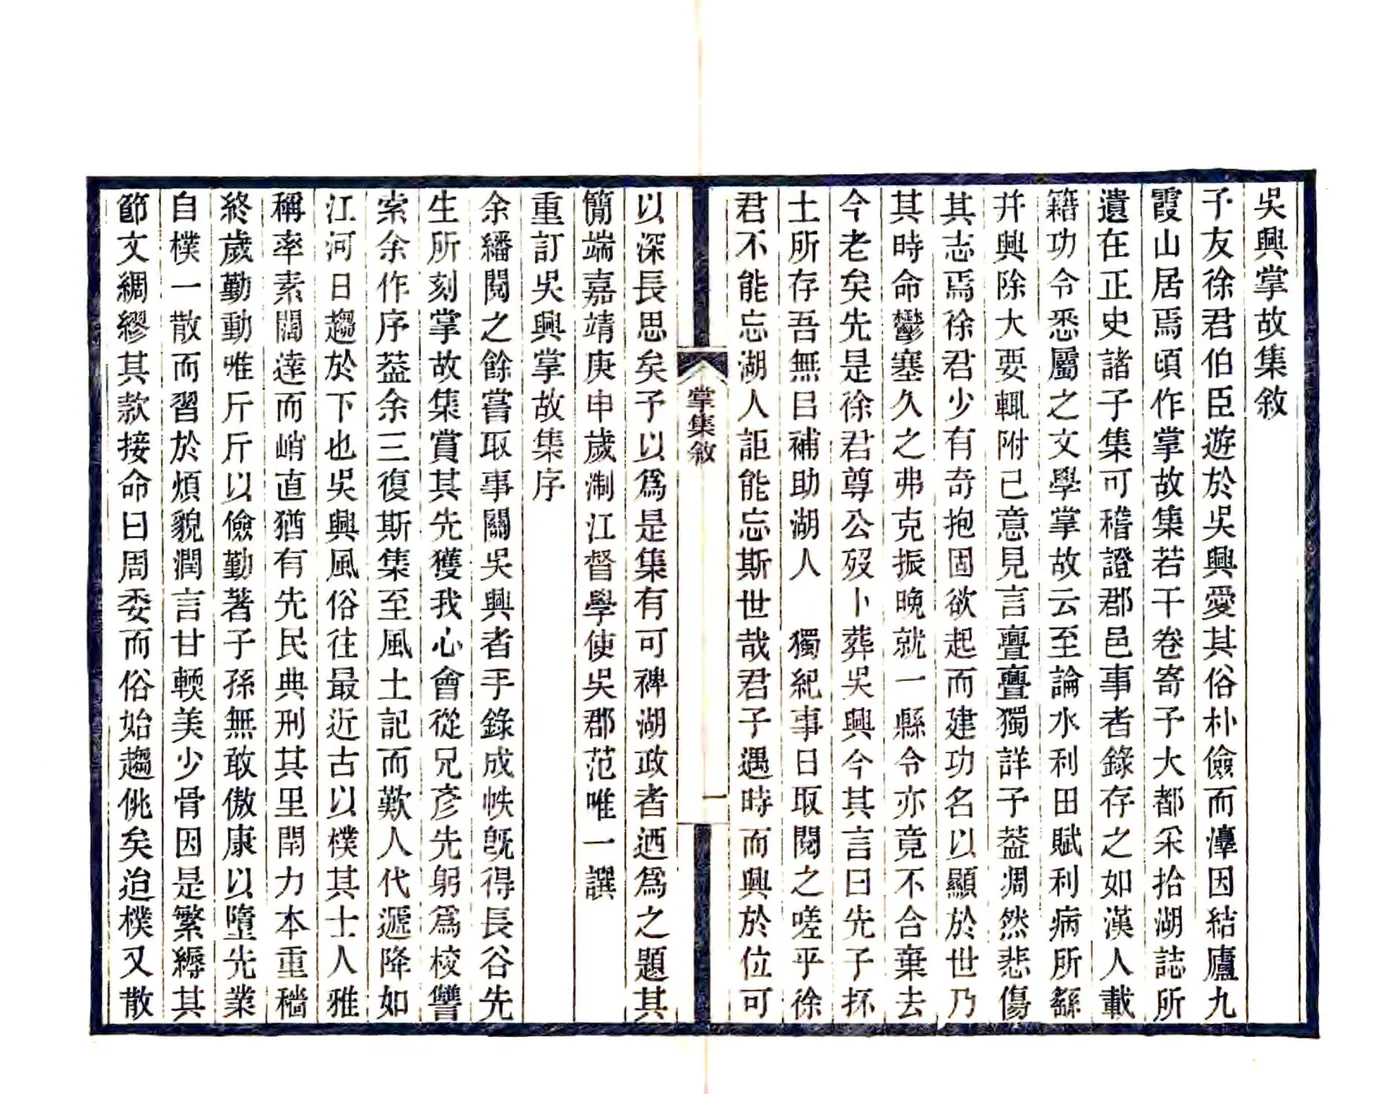 吳興掌故集敘
予友徐君伯臣遊於吳興愛其俗朴儉而漳因結廬九
霞山居焉頃作掌故集若干卷寄予大都采拾湖誌所
遺在正史諸子集可稽證郡邑事者錄存之如漢人載
籍功令悉屬之文學掌故云至論水利田賦利病所繇
幷興除大要輒附己意見言亹亹獨詳予葢凋然悲傷
其志焉徐君少有奇抱固欲起而建功名以顯於世乃
其時命鬱塞久之弗克振晚就一縣令亦竟不合棄去
今老矣先是徐君尊公歿卜葬吳興今其言曰先子抔
土所存吾無㠯補助湖人　獨紀事日取閱之嗟乎徐
君不能忘湖人詎能忘斯世哉君子遇時而興於位可
掌集敘
一
以深長思矣予以爲是集有可裨湖政者迺爲之題其
簡端嘉靖庚申歲淛江督學使吳郡范唯一譔
重訂吳興掌故集序
余繙閱之餘嘗取事關吳興者手錄成帙旣得長谷先
生所刻掌故集賞其先獲我心會從兄彥先躬爲校讐
索余作序葢余三復斯集至風土記而歎人代遞降如
江河日趨於下也吳興風俗往最近古以樸其士人雅
稱率素闊達而峭直猶有先民典刑其里閈力本重穡
終歲勤動唯斤斤以儉勤著子孫無敢傲康以墮先業
自樸一散而習於煩貌潤言甘輭美少骨因是繁縟其
節文綢繆其款接命曰周委而俗始趨佻矣迨樸又散